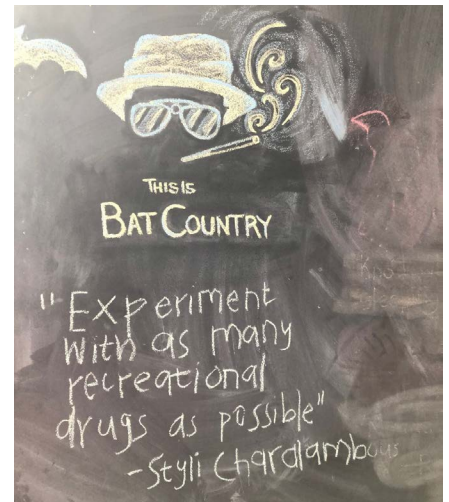 THIS IS
BAT COUNTRY
"Experiment
with as many
recreational
drugs as possible"
-Styli Charalambous